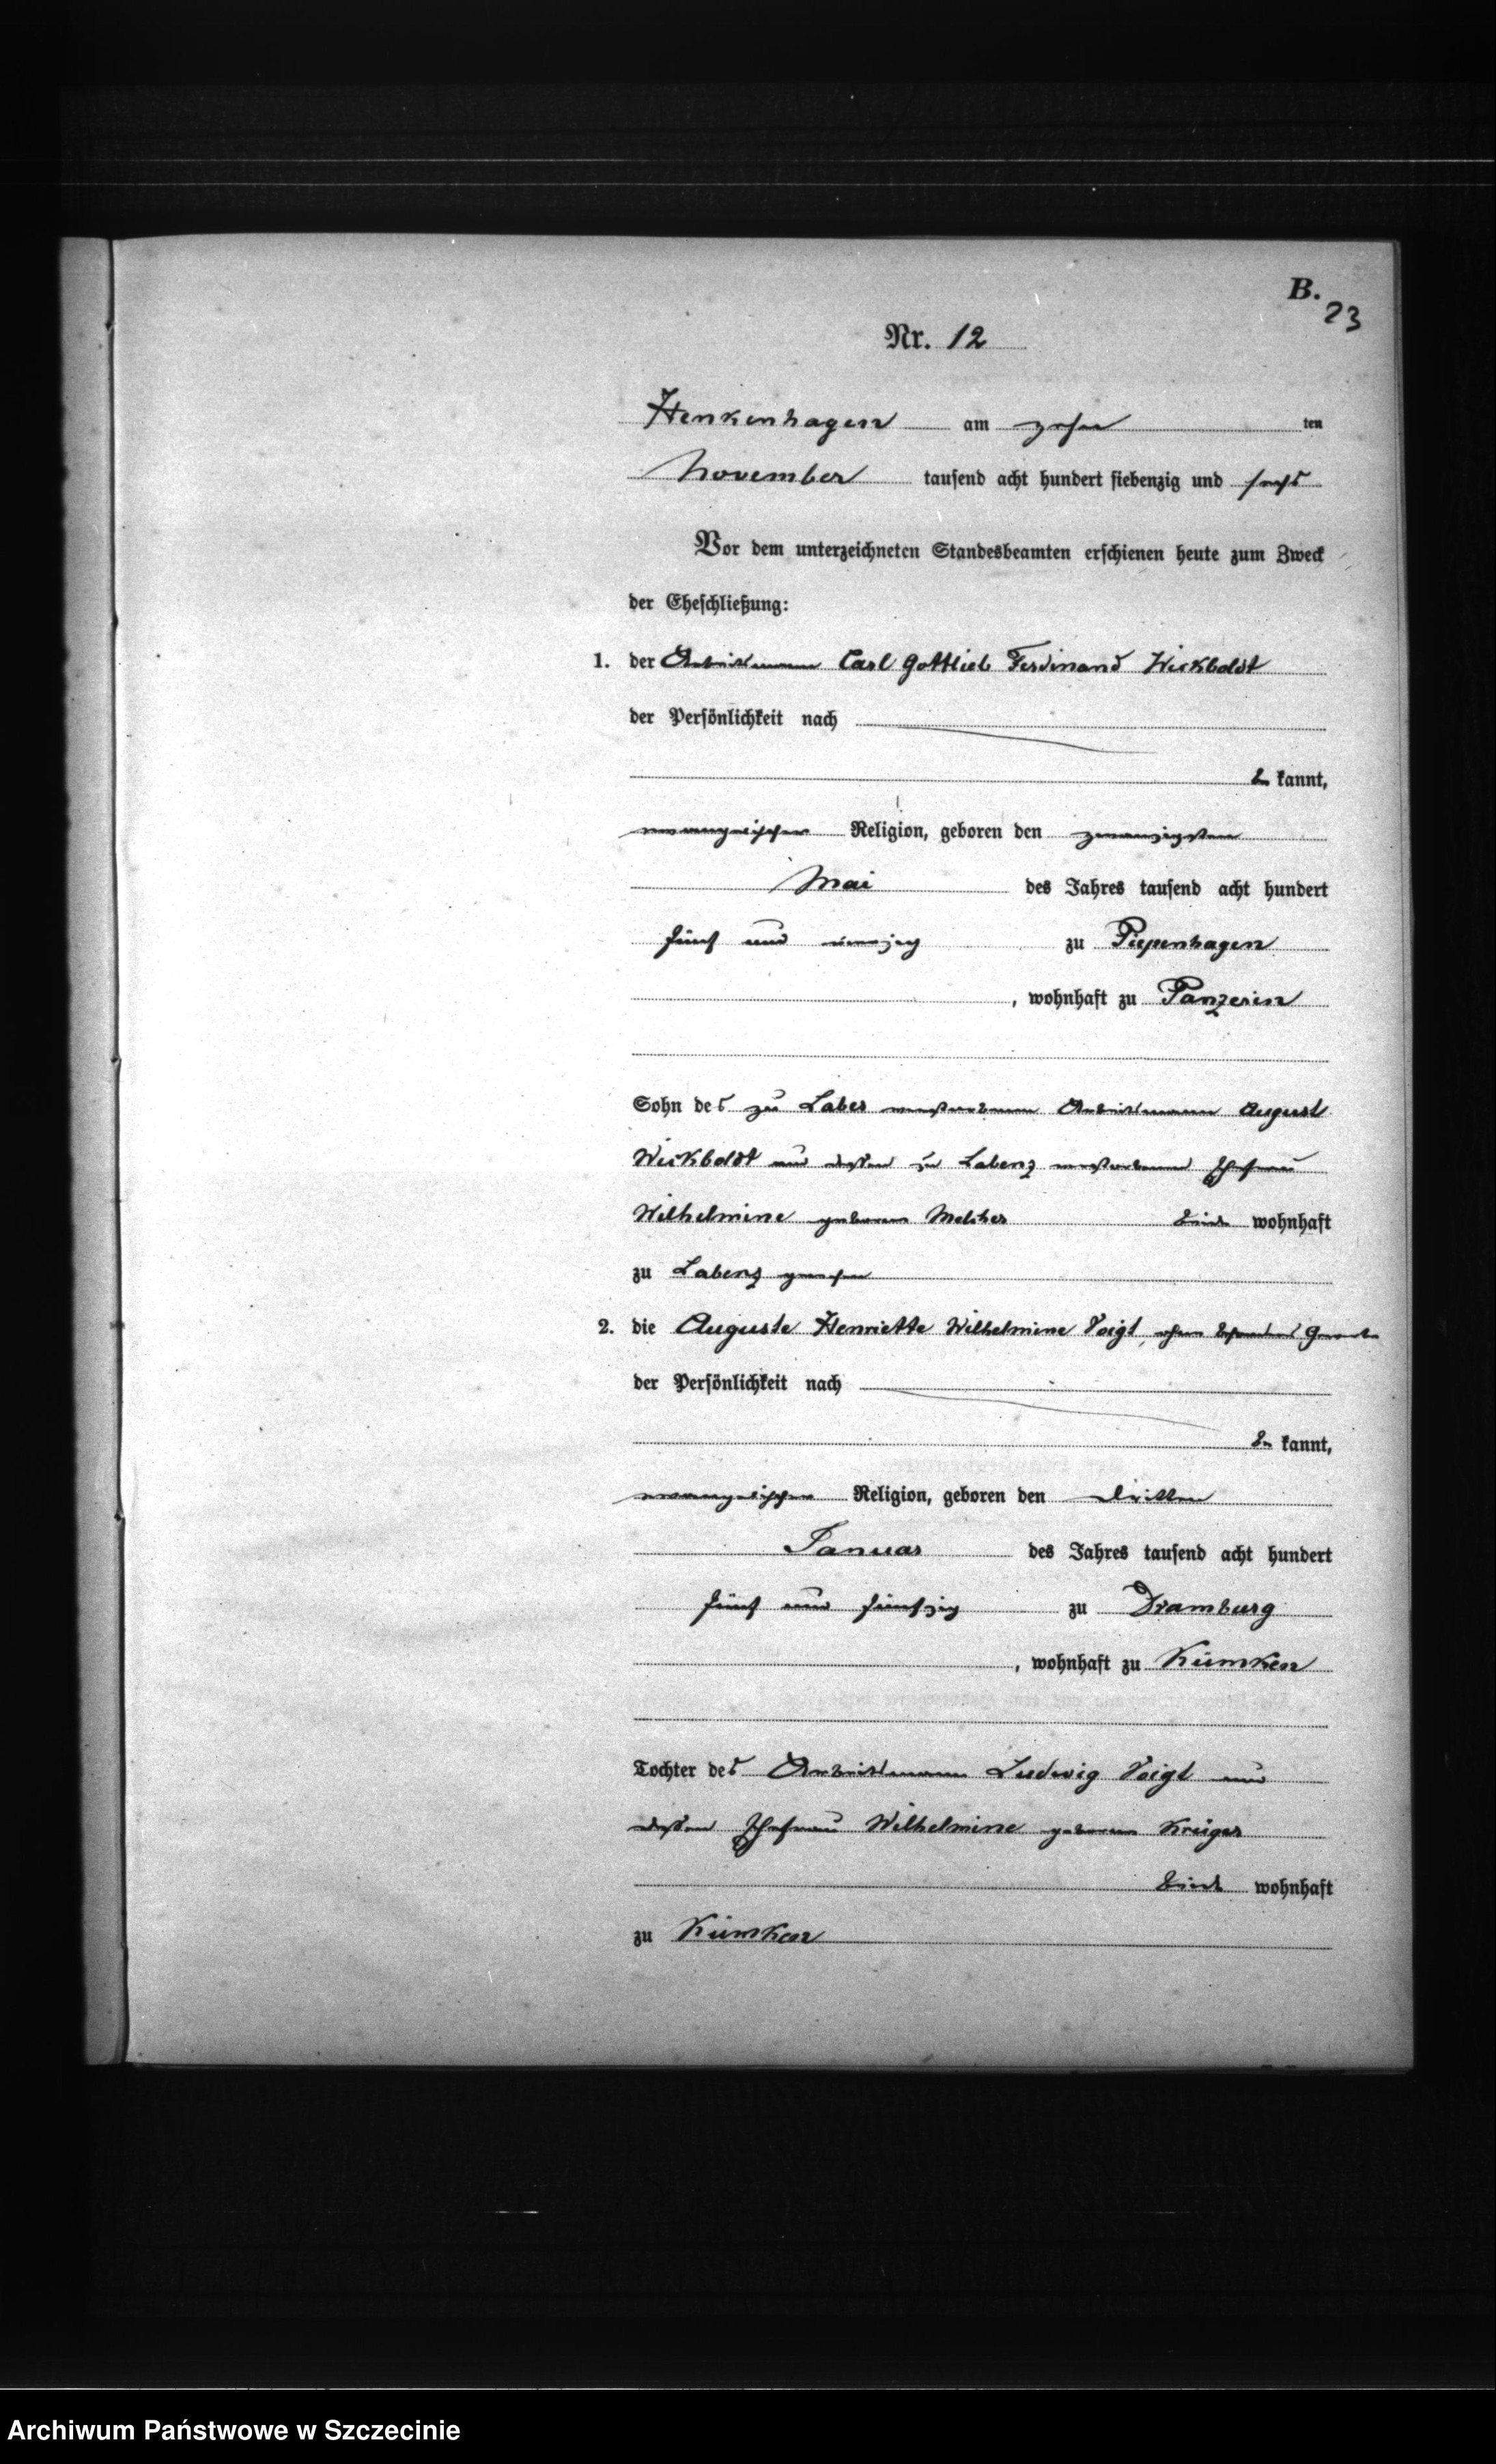 B.
23
Nr. 12
Henkenhagen am zehn ten
November tausend acht hundert siebenzig und sechs
Vor dem unterzeichneten Standesbeamten erschienen heute zum Zweck
der Eheschließung:
1. der Arbeitsmann Carl Gottlieb Ferdinand Wickboldt
der Persönlichkeit nach
be kannt,
evangelischer Religion, geboren den zwanzigsten
Mai des Jahres tausend acht hundert
fünf und vierzig zu Piepenhagen
, wohnhaft zu Panzerin
Sohn des zu Labes verstorbenen Arbeitsmann August
Wickboldt und dessen zu Labenz verstorbenen Ehefrau
Wilhelmine geborenen Melcher beide wohnhaft
zu Labenz gewesen
2. die Auguste Henriette Wilhelmine Voigt, ohne besonderes Gewerbe
der Persönlichkeit nach
be kannt,
evangelischer Religion, geboren den dritten
Januar des Jahres tausend acht hundert
fünf und fünfzig zu Dramburg
, wohnhaft zu Kümken
Tochter des Arbeitsmann Ludwig Voigt und
dessen Ehefrau Wilhelmine geborenen Krüger
beide wohnhaft
zu Kümken
Archiwum Państwowe w Szczecinie